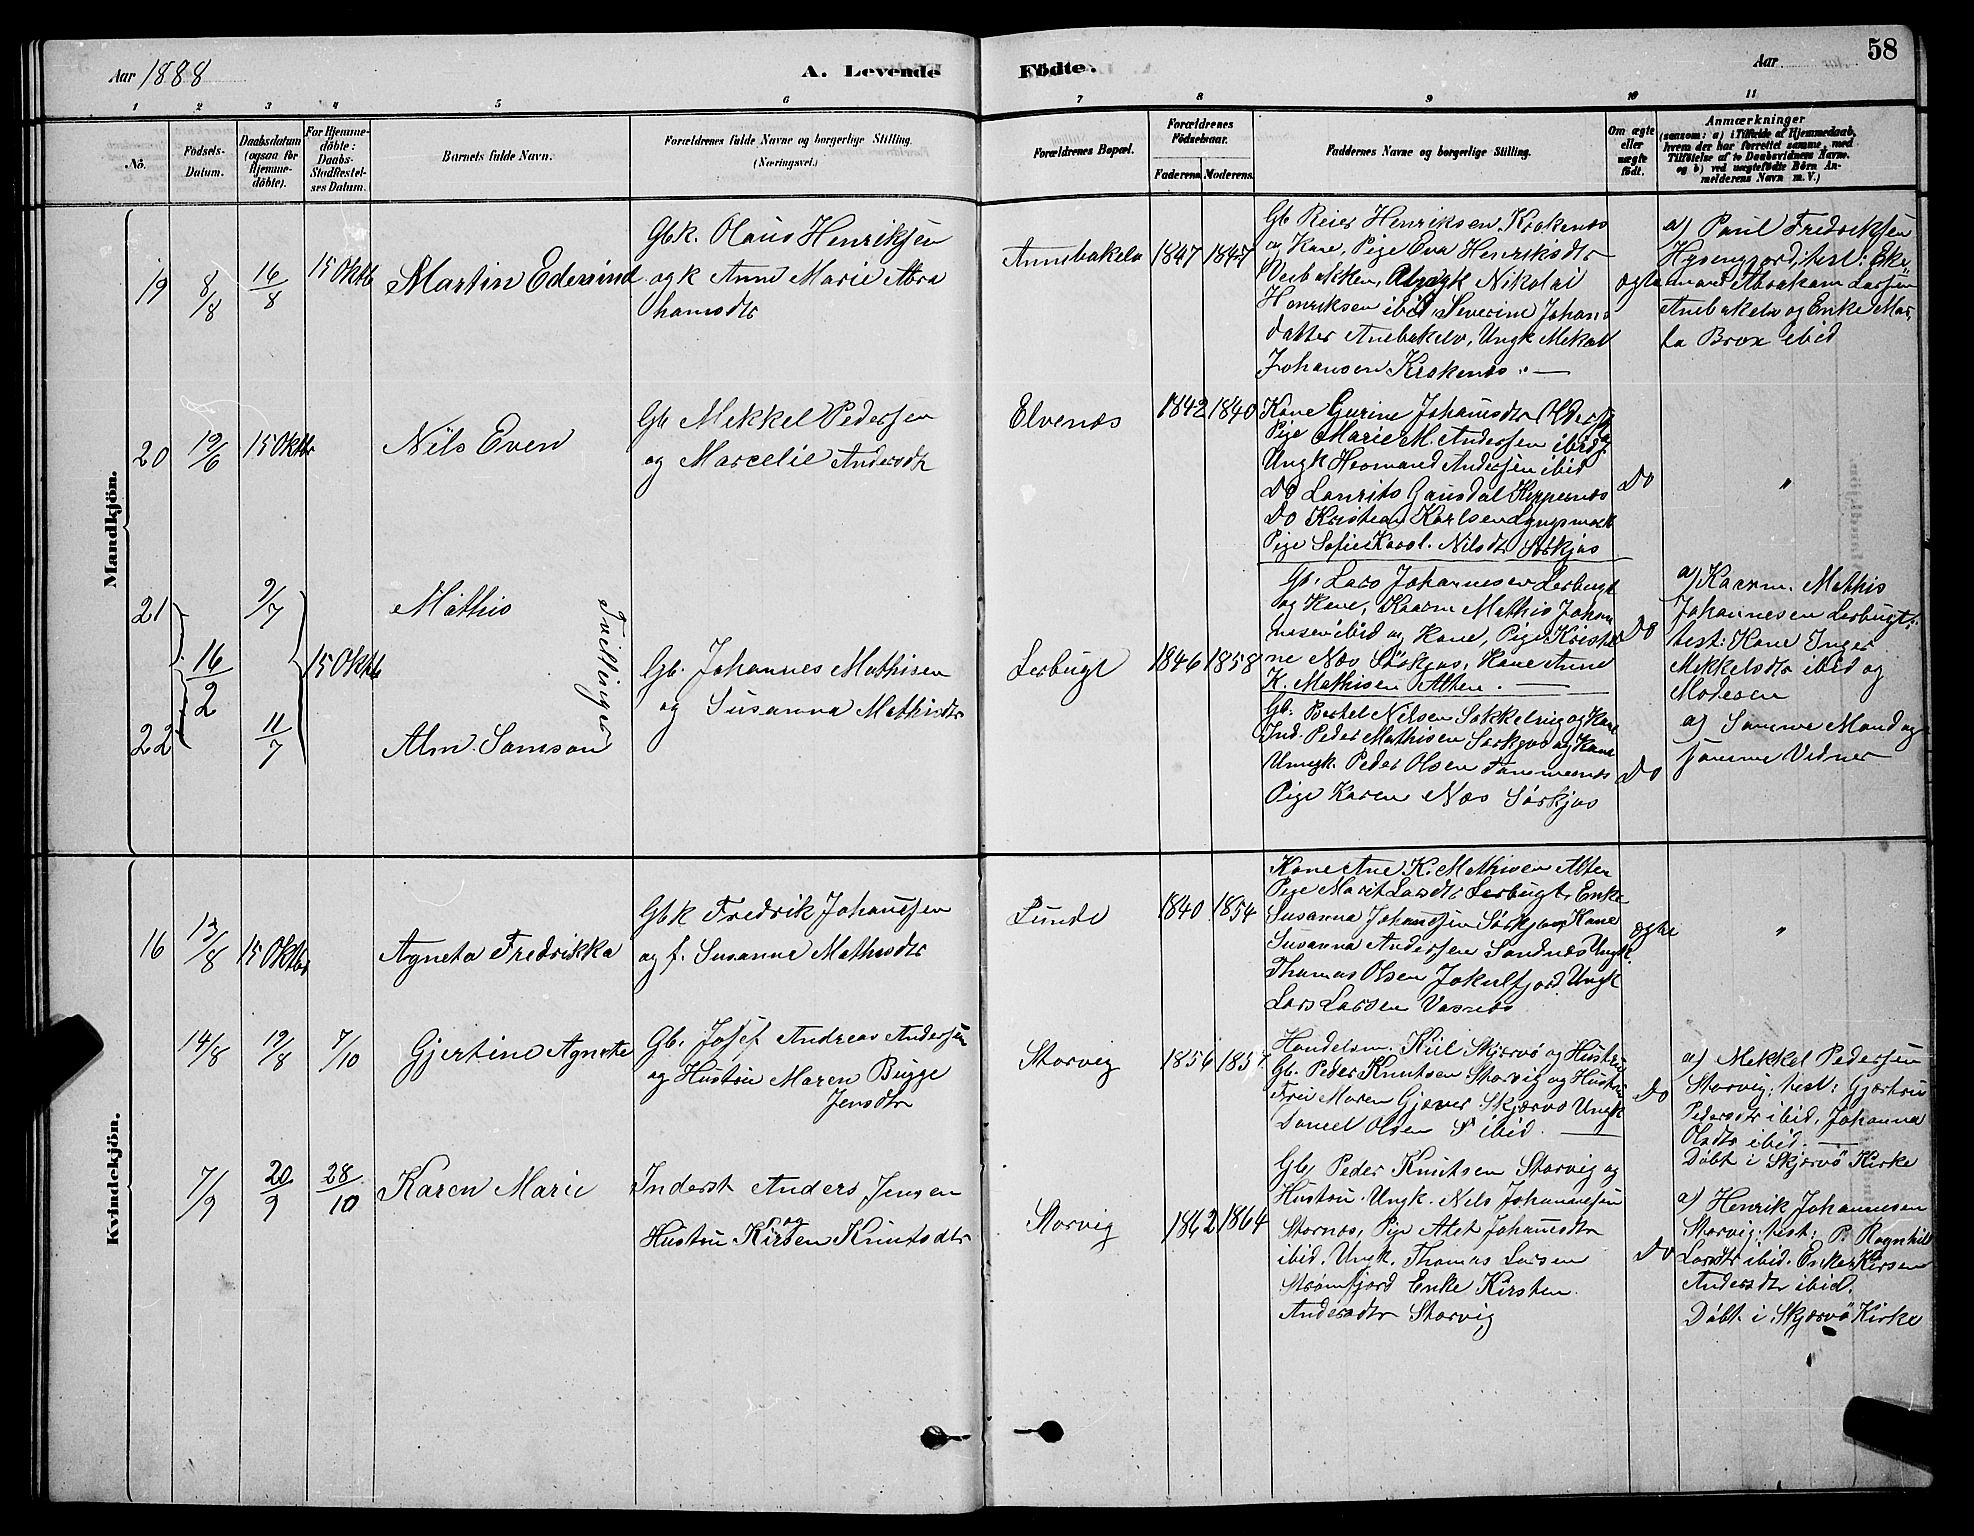 Aar 1888
A. Levende
Födte.
Aar
58
1 2 3 4 5 6 7 8 9 10 11
No.
Födsels-
Datum.
Daabsdatum
(ogsaa for
Hjemme-
döbte).
For Hjemme-
döbte:
Daabs-
Stadfæstel-
ses Datum.
Barnets fulde Navn.
Forældrenes fulde Navne og borgerlige Stilling.
(Næringsvei.)
Forældrenes Bopæl.
Forældrenes
Födselsaar.
Faderens Moderens.
Faddernes Navne og borgerlige Stilling.
Om ægte
eller
uægte
födt.
Anmærkninger
(saasom: a) i Tilfælde af Hjemmedaab,
hvem der har forrettet samme, med
Tilföielse af to Daabsvidners Navne.
og b) ved uægtefödte Börn An-
melderens Navn m. V.)
Mandkjön.
19
8/8
16/8
15 Oktb
Martin Edevind
Gbk. Olaus Henriksen
og k Anne Marie Abra
hamsdtr
Annebakelv
1847 1847
Gb Reier Henriksen Krakenes
og Kone, Pige Eva Henriksdtr
Henriksen ibid, Severine Johans
datter Anebakelv, Ungk Mekal
Johansen Krakenes. —
ogte
a) Paul Fredriksen
mand Abraham Larsen
Anebakelv og Enke Mar
ta Brox ibid
20
19/6
15 Oktbr
Nils Even
Gb Mekkel Pedersen
og Marcelie Andersdtr
Elvenes
1842 1840
Kone Gurine Johansdtr
Pige Marie M. Andersen ibid
Ungk Hermand Andersen ibid
Do Laurits Gausdal Keppernes
Do Kristian Karlsen
Pige Sofie Karol. Nilsdtr Sörkjos
Do
"
21
16/2
9/7
15 Oktb
Mathis
Tvillinger
22
11/7
Alm. Samson
Gb. Johannes Mathisen
og Susanna Mathisdtr
Lerbugt
1846 1858
Gb. Lars Johannesen Lerbugt
og Kone, Kaarm Mathis Johan
nesen ibid og Kone, Pige Kristi
ne Næs Sörkjos, Kone Anne
K. Mathisen Alten. —
Do
a) Kaarm. Mathis
Johannesen Lerbugt:
test: Kone Inger
Mekkelsdtr ibid og
Moderen
Gb. Berthel Nilsen Sokkelvig og Kone
Ind. Peder Mathisen Sörkjos og Kone
Ungk. Peder Olsen
Pige Karen Næs Sörkjos
Do
a) Samme Mand og
samme Vidner
Kvindekjön.
16
13/8
15 Oktbr
Agneta Fredrikka
Gbk Fredrik Johansen
og f. Susanne Mathisdtr
Lunde
1840 1854
Kone Ane K. Mathisen Alten
Pige Marit Larsdtr Lerbugt, Enke
Susanna Johannsen Sörkjos, Kone
Susanna Andersen Sandnes Ungk.
Thomas Olsen Jokulfjord Ungk
Lars Larsen Vasnes
ogte
"
14/8
19/8
7/10
Gjertine Agnete
Gb. Josef Andreas Andersen
og Hustru Maren Bugge
Jensdtr
Storvig
1856 1857
Handelsm. Kiil Skjervö og Hustru
Gb. Peder Knutsen Storvig og Hustru
Frü Maren Gjæver Skjervö Ungk
Daniel Olsen ibid. —
Do
a) Mekkel Pedersen
Storvig: test: Gjertru
Pedersdtr ibid, Johanna
Olsdtr ibid. —
Döbt i Skjervö Kirke
7/9
20/9
28/10
Karen Marie
Inderst Anders Jensen
og
Hustru Kirsten Knutsdtr
Storvig
1862 1864
Gb, Peder Knutsen Storvig og
Hustru. Ungk. Nils Johannesen
Stornes, Pige Alet Johansdtr
ibid. Ungk. Thomas Larsen
Enke Kirsten
Andersdtr Storvig
Do
a) Henrik Johannesen
Storvig: test: P. Ragnhild
Larsdtr ibid. Enke Kirsten
Andersdtr ibid.
Döbt i Skjervö Kirke